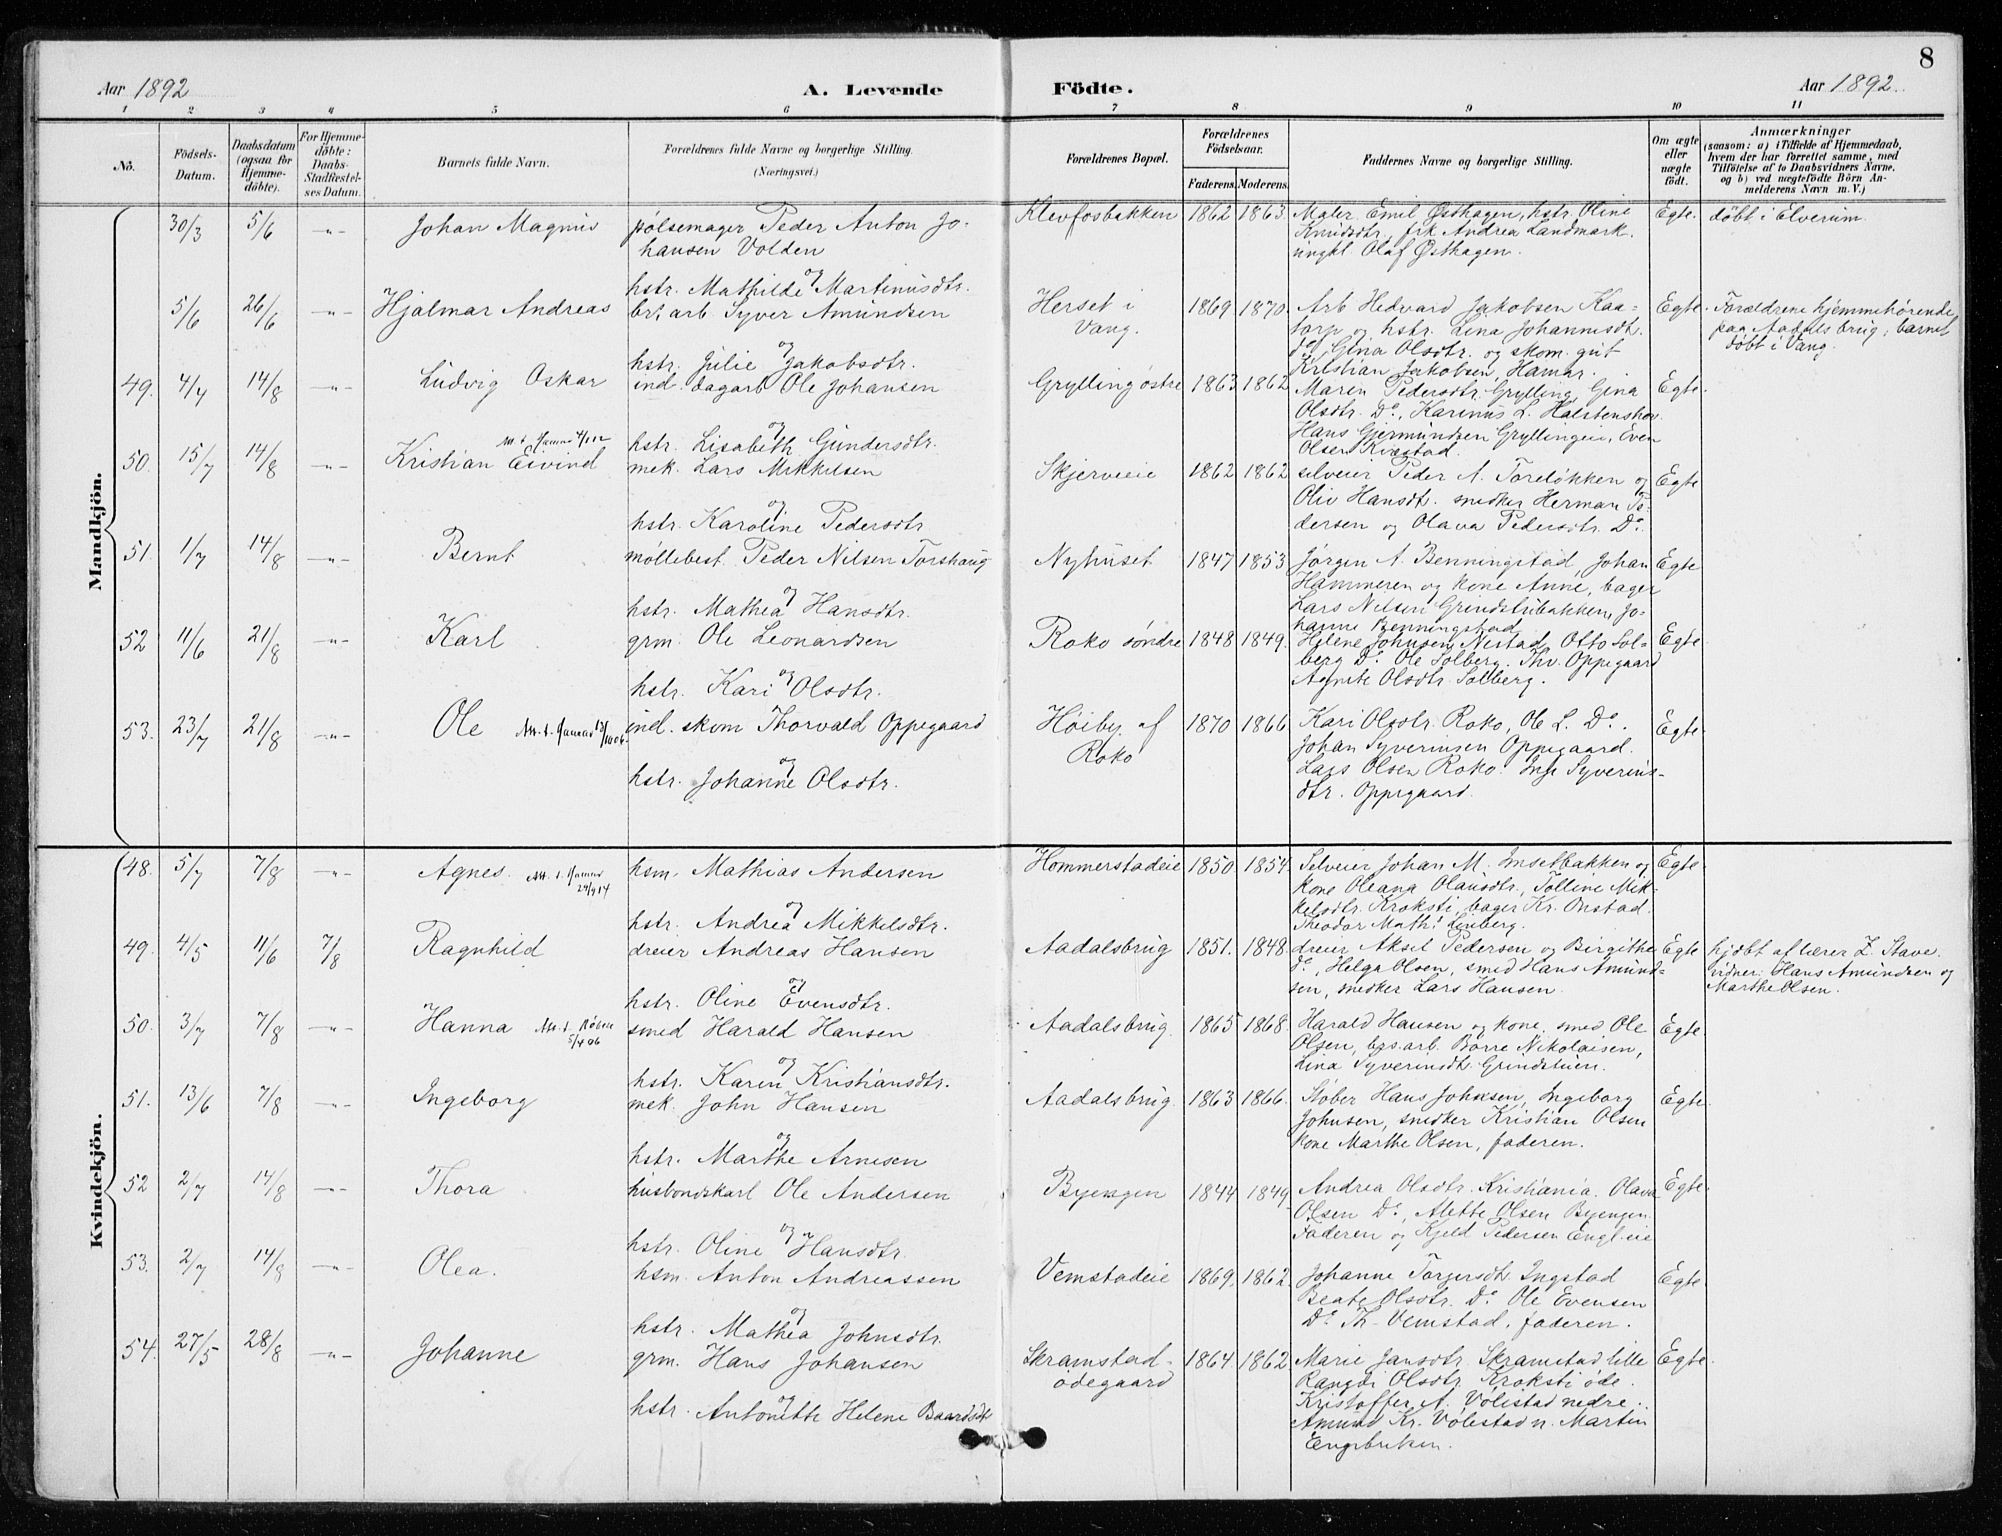 8
Aar 1892 A. Levende Födte. Aar 1892
1 2 3 4 5 6 7 8 9 10 11
No.
Födsels-
Datum.
Daabsdatum
(ogsaa for
Hjemme-
döbte).
For Hjemme-
döbte:
Daabs-
Stadfæstel-
ses Datum.
Barnets fulde Navn.
Forældrenes fulde Navne og borgerlige Stilling.
(Næringsvei.)
Forældrenes Bopæl.
Forældrenes
Födselsaar.
Faderens. Moderens.
Faddernes Navne og borgerlige Stilling.
Om ægte
eller
uægte
födt.
Anmærkninger
(saasom: a) i Tilfælde af Hjemmedaab,
hvem der har forrettet samme, med
Tilföielse af to Daabsvidners Navne,
og b) ved uægtefödte Börn An-
melderens Navn m. V.)
Mandkjön.
30/3 5/6 -"- Johan Magnus
pølsemager Peder Anton Jo-
hansen Volden
og
hstr. Mathilde Martinusdtr.
Klevfosbakken 1862 1863
Maler Emil Østhagen, hstr. Oline
Knudsdtr, frk Andrea Landmark.
ungkl. Olaf Østhagen.
Egte. døbt i Elverum.
5/6 26/6 -"- Hjalmar Andreas
br. arb. Syver Amundsen
og
hstr. Julie Jakobsdtr.
Herset i
Vang.
1869 1870.
Arb Hedvard Jakobsen Kaa-
torp og hstr. Lina Johannesdt.
do Gina Olsdtr. og skom. gut
Kristian Jakobsen, Hamar.
Egte.
Forældrene hjemmehørende
paa Aadals brug; barnet
døbt i Vang.
49. 4/7 14/8 -"- Ludvig Oskar
ind. dagarb Ole Johansen
og
hstr. Lisabeth Gundersdtr.
Grylling østre 1863 1862
Maren Pedersdtr. Grylling, Gina
Olsdtr. Do, Karinus L. Halstenshov
Hans Gjermundsen Gryllingeie, Even
Olsen Kvæstad.
Egte.
50. 15/7 14/8 -"- Kristian Eivind
mek. Lars Mikkelsen
og
hstr. Karoline Pedersdtr
Skjerveeie 1862 1862
selveier Peder A. Foreløkken og
Oliv Hansdt. snedker Herman Pe-
dersen og Olava Pedersdtr. Do.
Egte
51. 1/7 14/8 -"- Bernt
møllebest. Peder Nilsen Torshaug
og
hstr. Mathea Hansdtr.
Nyhuset 1847 1853
Jørgen A. Benningstad, Johan
Hammeren og kone Anne, bager
Lars Nilsen Grindstubakken, Jo-
hanne Benningstad
Egte
52 11/6 21/8 -"- Karl
grm. Ole Leonardsen
og
hstr. Kari Olsdtr.
Roko søndre 1848 1849.
Helene Johnsen Nestad, Otto Sol-
berg Do. Ole Solberg. Thv. Oppegaard
Agnete Olsdtr. Solberg.
Egte.
53. 23/7 21/8 -"- Ole
ind. skom Thorvald Oppegaard
og
hstr. Johanne Olsdtr.
Høiby af
Roko
1870 1866
Kari Olsdtr. Roko, Ole L. Do.
Johan Syverinsen Oppegaard.
Lars Olsen Roko. Inge Syverins-
dtr. Oppegaard.
Egte.
Kvindekjön.
48. 5/7 7/8 -"- Agnes.
hsm. Mathias Andersen
og
hstr. Andrea Mikkelsdtr.
Hommerstadeie 1850. 1854.
Selveier Johan M. Insetbakken og
kone Oleana Olausdtr., Tolline Mik-
kelsdtr. Kroksti, bager Kr. Onstad.
Theodor Math. Linberg.
Egte.
49. 4/5 11/6 7/8 Ragnhild
dreier Andreas Hansen
og
hstr. Oline Evensdtr.
Aadalsbrug 1851. 1848.
dreier Aksel Pedersen og Birgithe
Do, Helga Olsen, smed Hans Amund-
sen, snedker Lars Hansen.
Egte
hjdbt af lærer Z. Stave.
vidner: Hans Amundsen og
Marthe Olsen.
50. 3/7 7/8 -"- Hanna
smed Harald Hansen
og
hstr. Karen Kristiansdtr.
Aadalsbrug. 1865 1868.
Harald Hansen og kone, smed Ole
Olsen, bgs. arb. Børre Nikolaisen,
Lina Syverinsdt. Grindstuen.
Egte.
51. 13/6 7/8 -"- Ingeborg
mek. John Hansen
og
hstr. Marthe Arnesen
Aadalsbrug. 1863 1866.
Støber Hans Johnsen, Ingeborg
Johnsen, snedker Kristian Olsen
kone Marthe Olsen, faderen.
Egte.
52 2/7 14/8 -"- Thora
husbondskarl Ole Andersen
og
hstr. Oline Hansdtr.
Byengen 1844 1849
Andrea Olsdtr. Kristiania. Olava
Olsen Do, Alette Olsen Byengen.
Faderen og Kjeld Pedersen Engl.eie
Egte.
53. 2/7 14/8 -"- Olea.
hsm. Anton Andreassen
og
hstr. Mathea Johnsdtr.
Vemstadeie 1869. 1862.
Johanne Torgersdt. Ingstad
Beate Olsdtr. Do. Ole Evensen
Do Th. Vemstad, faderen.
Egte.
54. 27/5 28/8 -"- Johanne
grm. Hans Johansen
og
hstr. Antonette Helene Baardsdt
Skramstad-
ødegaard
1864. 1862
Marie Jansdtr. Skramstad lille
Rangdi Olsdtr. Kroksti øde.
Kristoffer A. Vølestad nedre.
Amund Kr. Vølestad n. Martin
Engebriksen.
Egte.